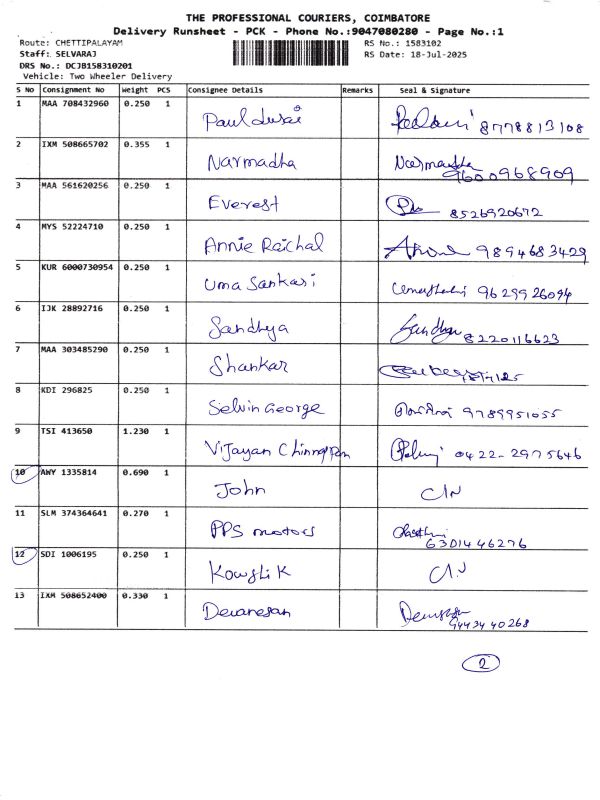 THE PROFESSIONAL COURIERS, COIMBATORE
Delivery Runsheet - PCK - Phone No.:9047080280 - Page No.:1
Route: CHETTIPALAYAM RS No.: 1583102
Staff: SELVARAJ RS Date: 18-Jul-2025
DRS No.: DCJB158310201
Vehicle: Two Wheeler Delivery
S No Consignment No Weight PCS Consignee Details Remarks Seal & Signature
1 MAA 708432960 0.250 1 Paul durai 8778813108
2 IXM 508665702 0.355 1 Narmadha Narmadha 9600968909
3 MAA 561620256 0.250 1 Everest 8526920672
4 MYS 52224710 0.250 1 Annie Raichal 9894683429
5 KUR 6000730954 0.250 1 Uma Sankari 9629926094
6 IJK 28892716 0.250 1 Sandhya Sandhya 8220116623
7 MAA 303485290 0.250 1 Shankar
8 KDI 296825 0.250 1 Selvin George 9789951055
9 TSI 413650 1.230 1 Vijayan Chinnappan 0422-2975646
10 AWY 1335814 0.690 1 John C/N
11 SLM 374364641 0.270 1 PPS motors 6301446276
12 SDI 1006195 0.250 1 Kowshik C/N
13 IXM 508652400 0.330 1 Devanesan 9443440268
2